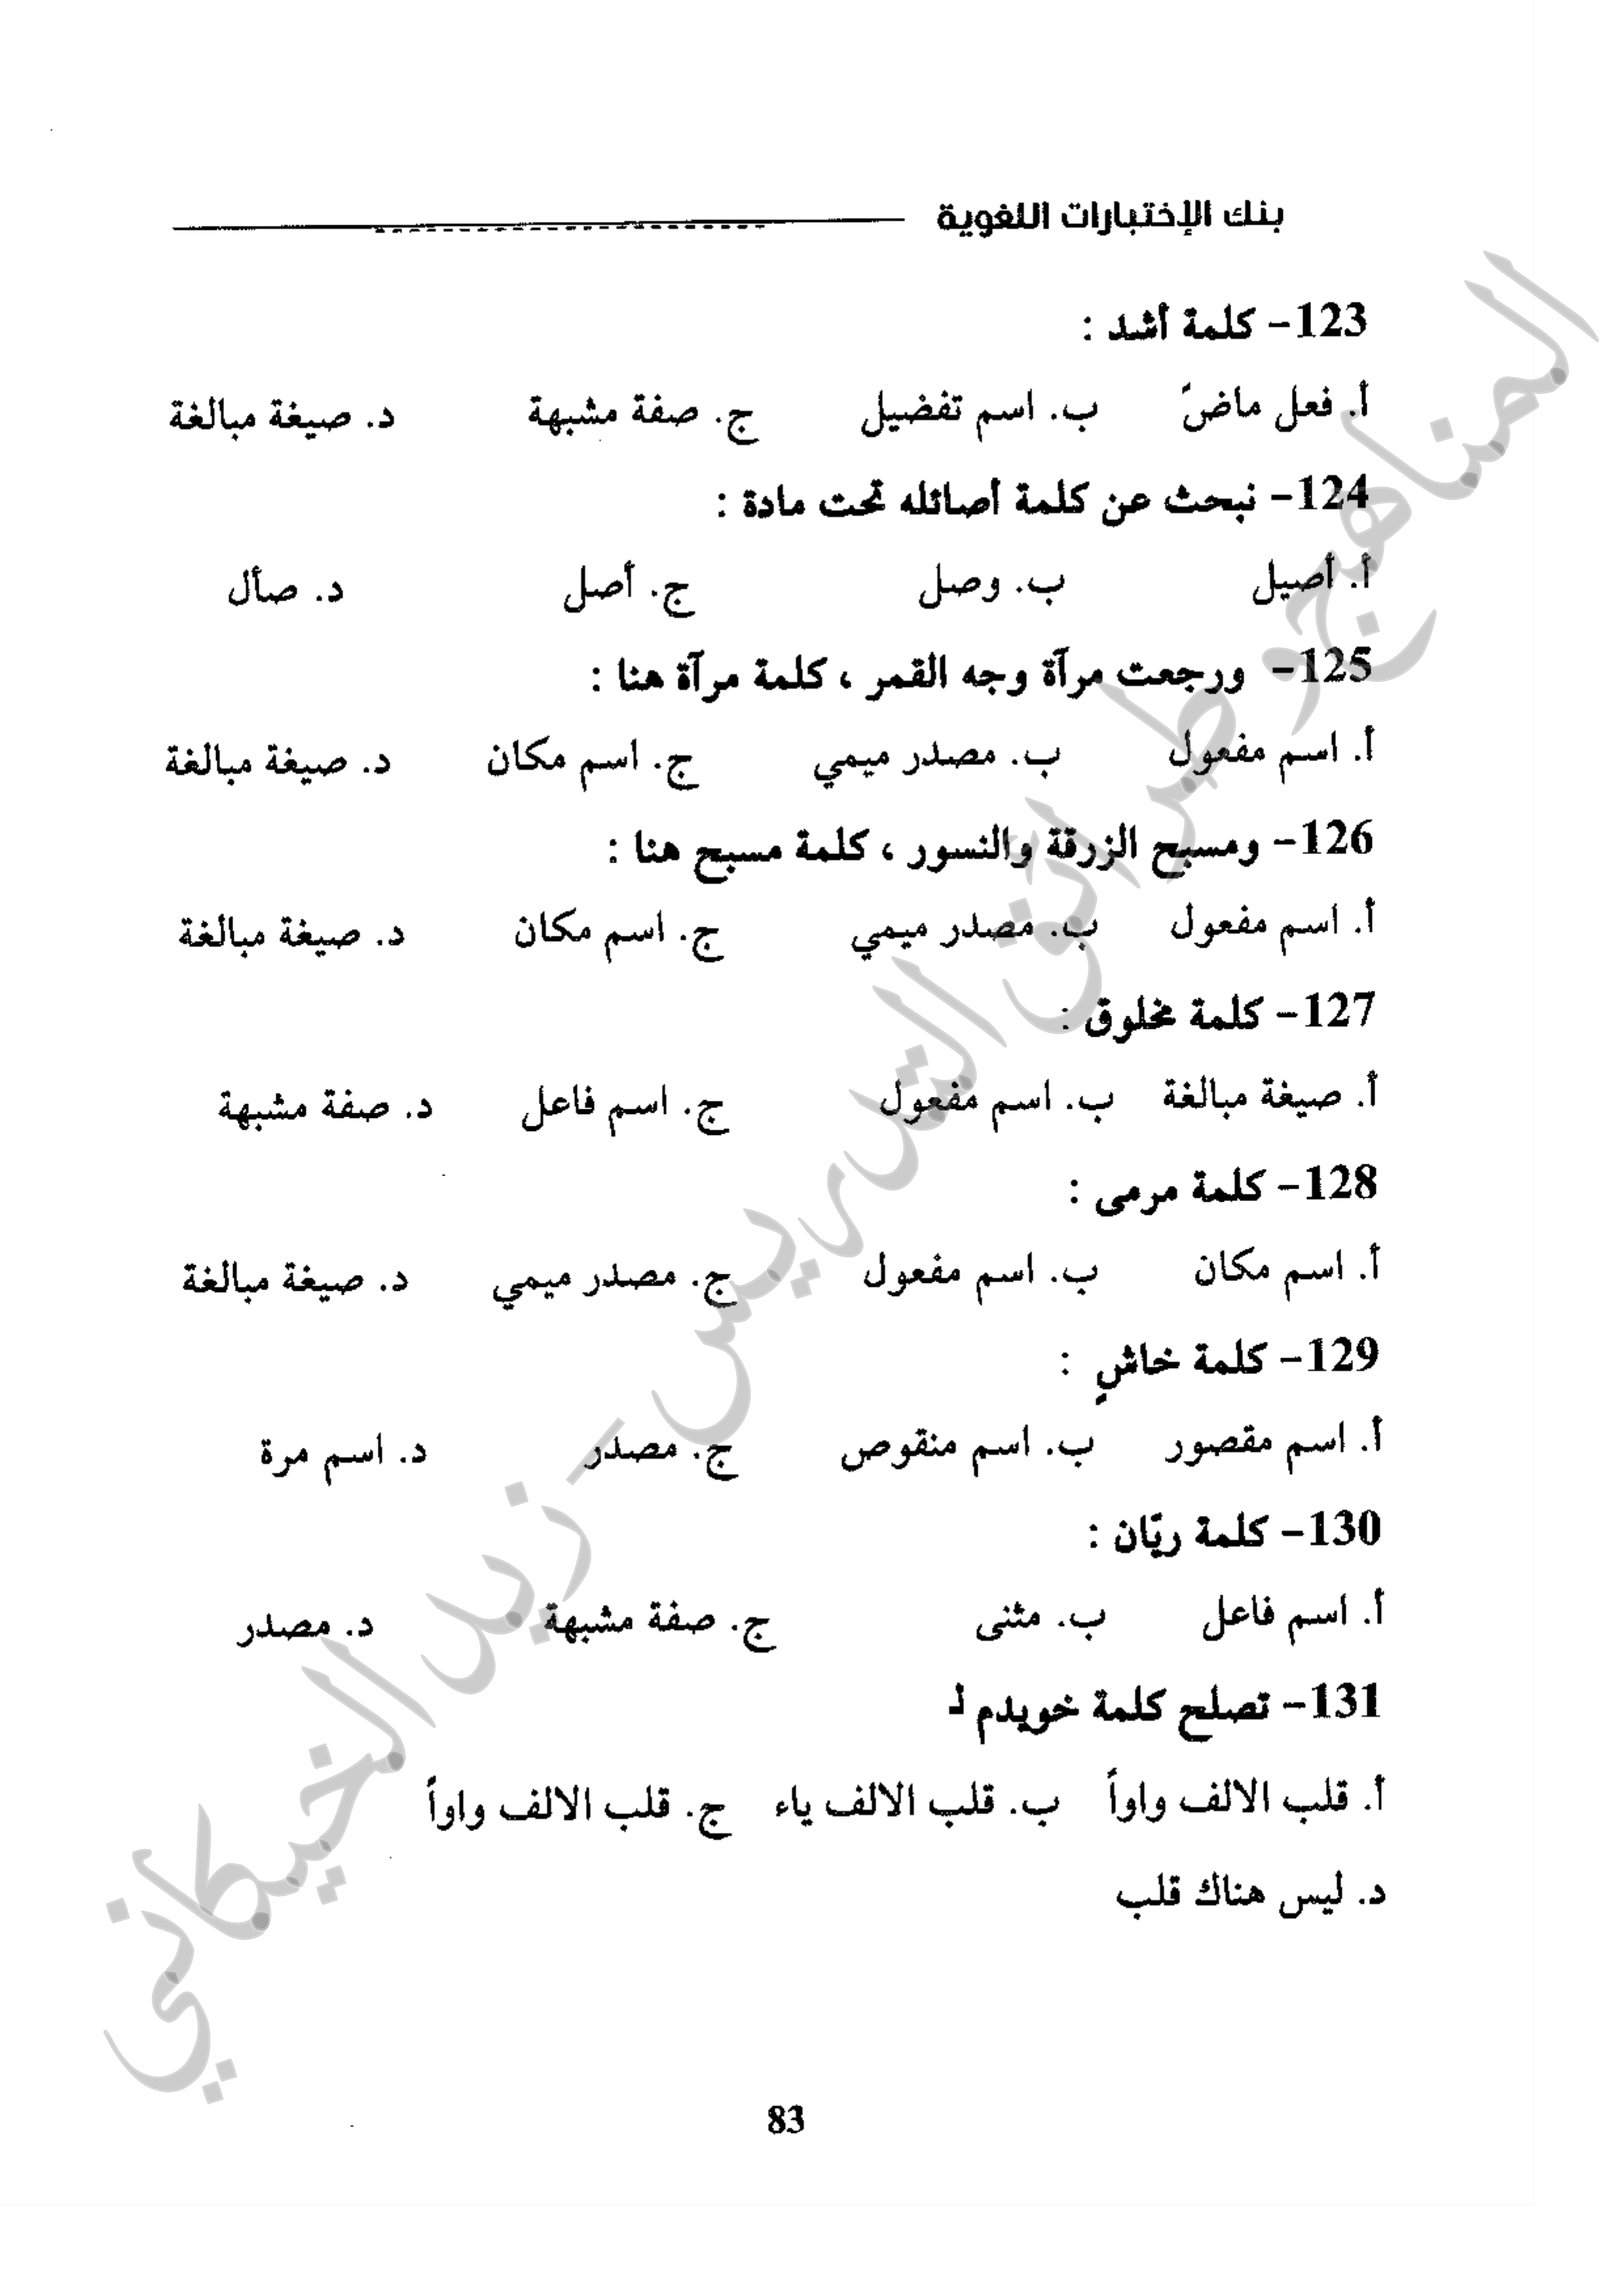 بنك الإختبارات اللغوية
123- كلمة أشد :
أ. فعل ماضٍ ب. اسم تفضيل ج. صفة مشبهة د. صيغة مبالغة
124- نبحث عن كلمة أصائله تحت مادة :
أ. أصيل ب. وصل ج. أصل د. صأل
125- ورجعت مرآة وجه القمر ، كلمة مرآة هنا :
أ. اسم مفعول ب. مصدر ميمي ج. اسم مكان د. صيغة مبالغة
126- ومسبح الزرقة والنسور ، كلمة مسبح هنا :
أ. اسم مفعول ب. مصدر ميمي ج. اسم مكان د. صيغة مبالغة
127- كلمة مخلوق :
أ. صيغة مبالغة ب. اسم مفعول ج. اسم فاعل د. صفة مشبهة
128- كلمة مرمى :
أ. اسم مكان ب. اسم مفعول ج. مصدر ميمي د. صيغة مبالغة
129- كلمة خاشٍ :
أ. اسم مقصور ب. اسم منقوص ج. مصدر د. اسم مرة
130- كلمة ريّان :
أ. اسم فاعل ب. مثنى ج. صفة مشبهة د. مصدر
131- تصلح كلمة خويدم لـ
أ. قلب الالف واواً ب. قلب الالف ياء ج. قلب الالف واواً
د. ليس هناك قلب
83
المناهج وطرائق التدريس - زيد الخيكاني